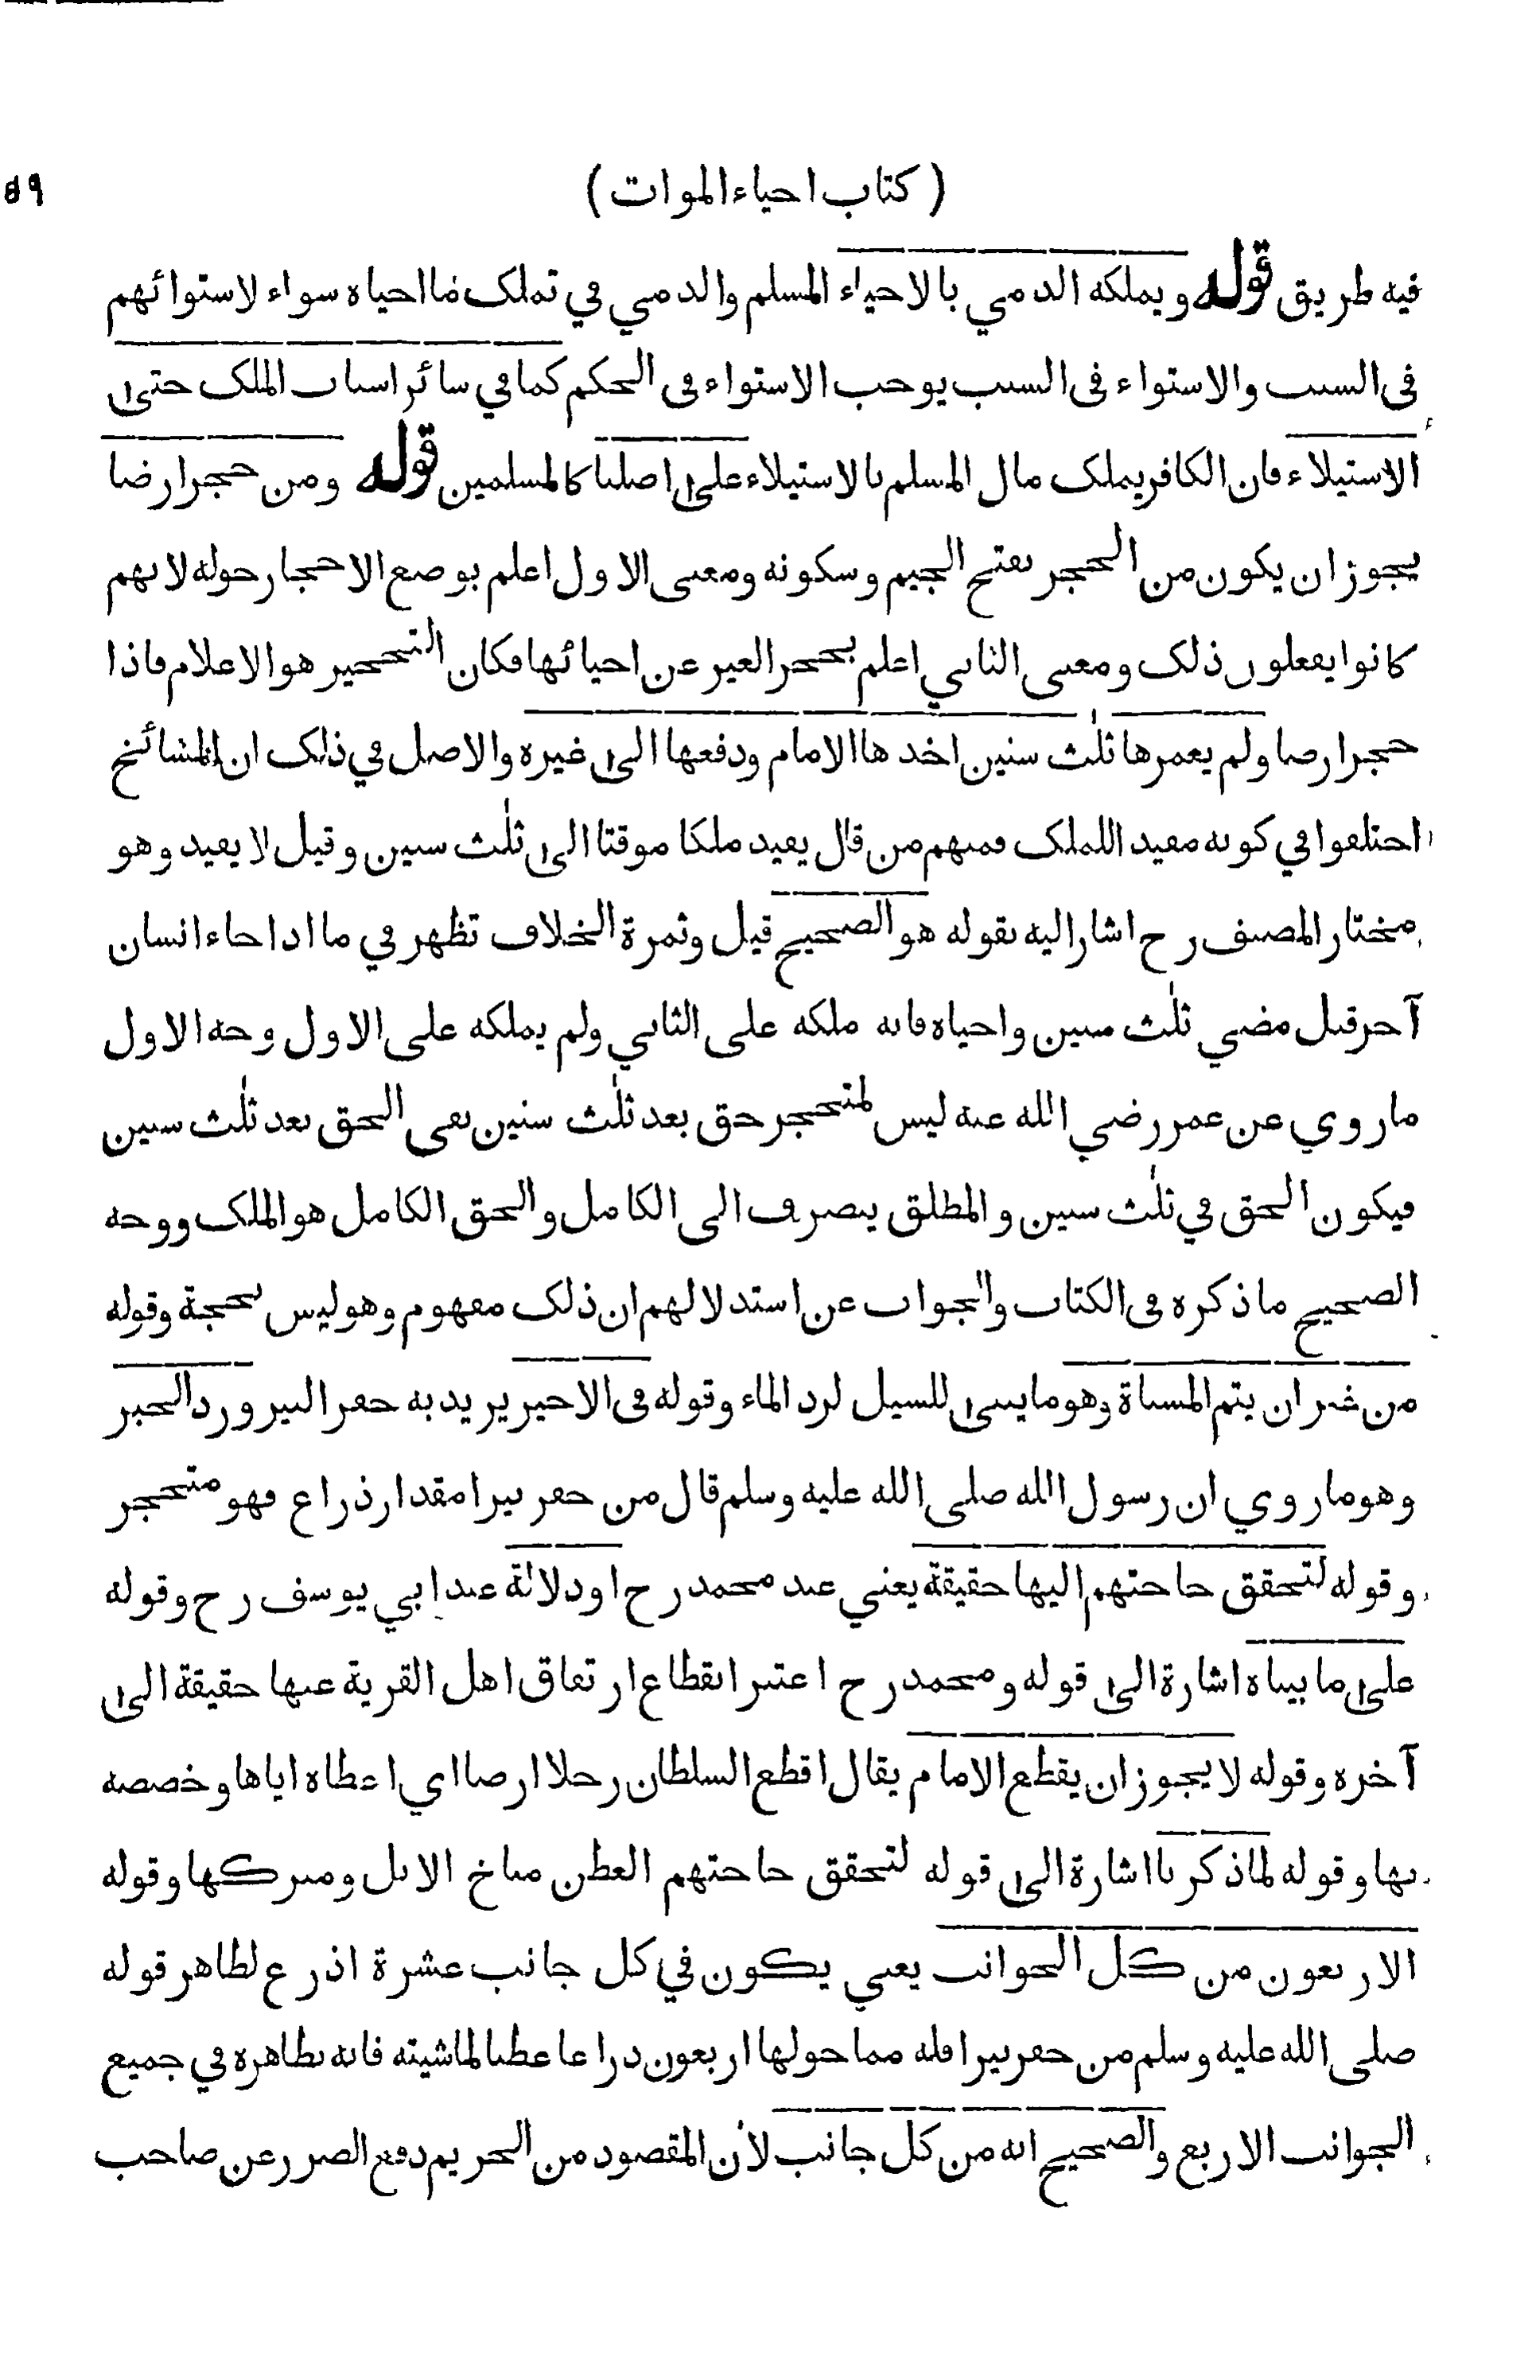 ( كتاب احياء الموات ) ٥٩
فيه طريق قوله ويملكه الذمي بالاحياء المسلم والذمي في تملك ما احياه سواء لاستوائهم
فى السبب والاستواء فى السبب يوجب الاستواء فى الحكم كما في سائر اسباب الملك حتى
الاستيلاء فان الكافر يملك مال المسلم بالاستيلاء على اصلنا كالمسلمين قوله ومن حجر ارضا
يجوز ان يكون من الحجر بفتح الجيم وسكونه ومعنى الاول اعلم بوضع الاحجار حوله لانهم
كانوا يفعلون ذلك ومعنى الثاني اعلم بحجر الغير عن احيائها فكان التحجير هو الاعلام فاذا
حجر ارضا ولم يعمرها ثلٰث سنين اخذها الامام ودفعها الى غيره والاصل في ذلك ان المشائخ
اختلفوا في كونه مفيدا للملك فمنهم من قال يفيد ملكا موقتا الى ثلٰث سنين وقيل لا يفيد وهو
مختار المصنف رح اشار اليه بقوله هو الصحيح قيل وثمرة الخلاف تظهر في ما اذا جاء انسان
آخر قبل مضي ثلٰث سنين واحياه فانه ملكه على الثاني ولم يملكه على الاول وجه الاول
ما روي عن عمر رضي الله عنه ليس لمتحجر حق بعد ثلٰث سنين نفى الحق بعد ثلٰث سنين
فيكون الحق في ثلٰث سنين والمطلق ينصرف الى الكامل والحق الكامل هو الملك ووجه
الصحيح ما ذكره فى الكتاب والجواب عن استدلالهم ان ذلك مفهوم وهو ليس بحجة وقوله
من غير ان يتم المسناة وهو ما يبنى للسيل لرد الماء وقوله فى الاخير يريد به حفر البير ورد الخبر
وهو ما روي ان رسول الله صلى الله عليه وسلم قال من حفر بيرا مقدار ذراع فهو متحجر
وقوله لتحقق حاجتهم اليها حقيقة يعني عند محمد رح او دلالة عند ابي يوسف رح وقوله
على ما بيناه اشارة الى قوله ومحمد رح اعتبر انقطاع ارتفاق اهل القرية عنها حقيقة الى
آخره وقوله لا يجوز ان يقطع الامام يقال اقطع السلطان رجلا ارضا اي اعطاه اياها وخصصه
بها وقوله لما ذكرنا اشارة الى قوله لتحقق حاجتهم العطن مناخ الابل ومبركها وقوله
الاربعون من كل الجوانب يعني يكون في كل جانب عشرة اذرع لظاهر قوله
صلى الله عليه وسلم من حفر بيرا فله مما حولها اربعون ذراعا عطنا لماشيته فانه بظاهره في جميع
الجوانب الاربع والصحيح انه من كل جانب لأن المقصود من الحريم دفع الضرر عن صاحب